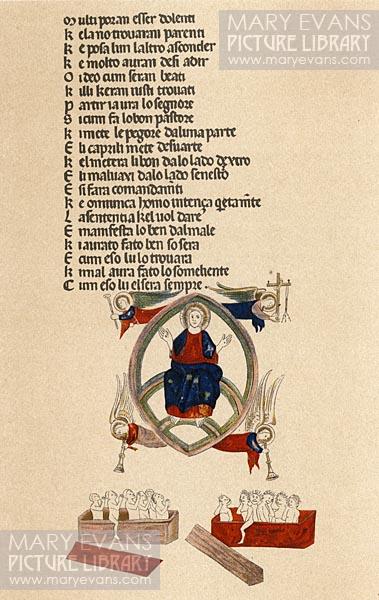 MARY EVANS
PICTURE LIBRARY
www.maryevans.com
Multi poran esser dolenti
K ela no trovaran parenti
K e posa lun laltro asconder
K e molto auran desi adir
O i deo cum seran beati
K illi keran iusti trovati
P artir ia ura lo segnore
S i cum fa lo bon pastore
K i mete le pegore da luna parte
E li caprili mete desvarte
K el metera li bon da lo lado dextro
E li malvaxi da lo lado senestro
E si fara comandam̄ti
K e omiunca homo intenca
L a sentencia kel vol dare
E manifesta lo ben dal male
K i aurato fato ben so sera
E cum eso lu lo trovara
K i mal aura fato lo somehente
C um eso lu el sera sempre.
MARY EVANS
PICTURE LIBRARY
www.maryevans.com
MARY EVANS
PICTURE LIBRARY
www.maryevans.com